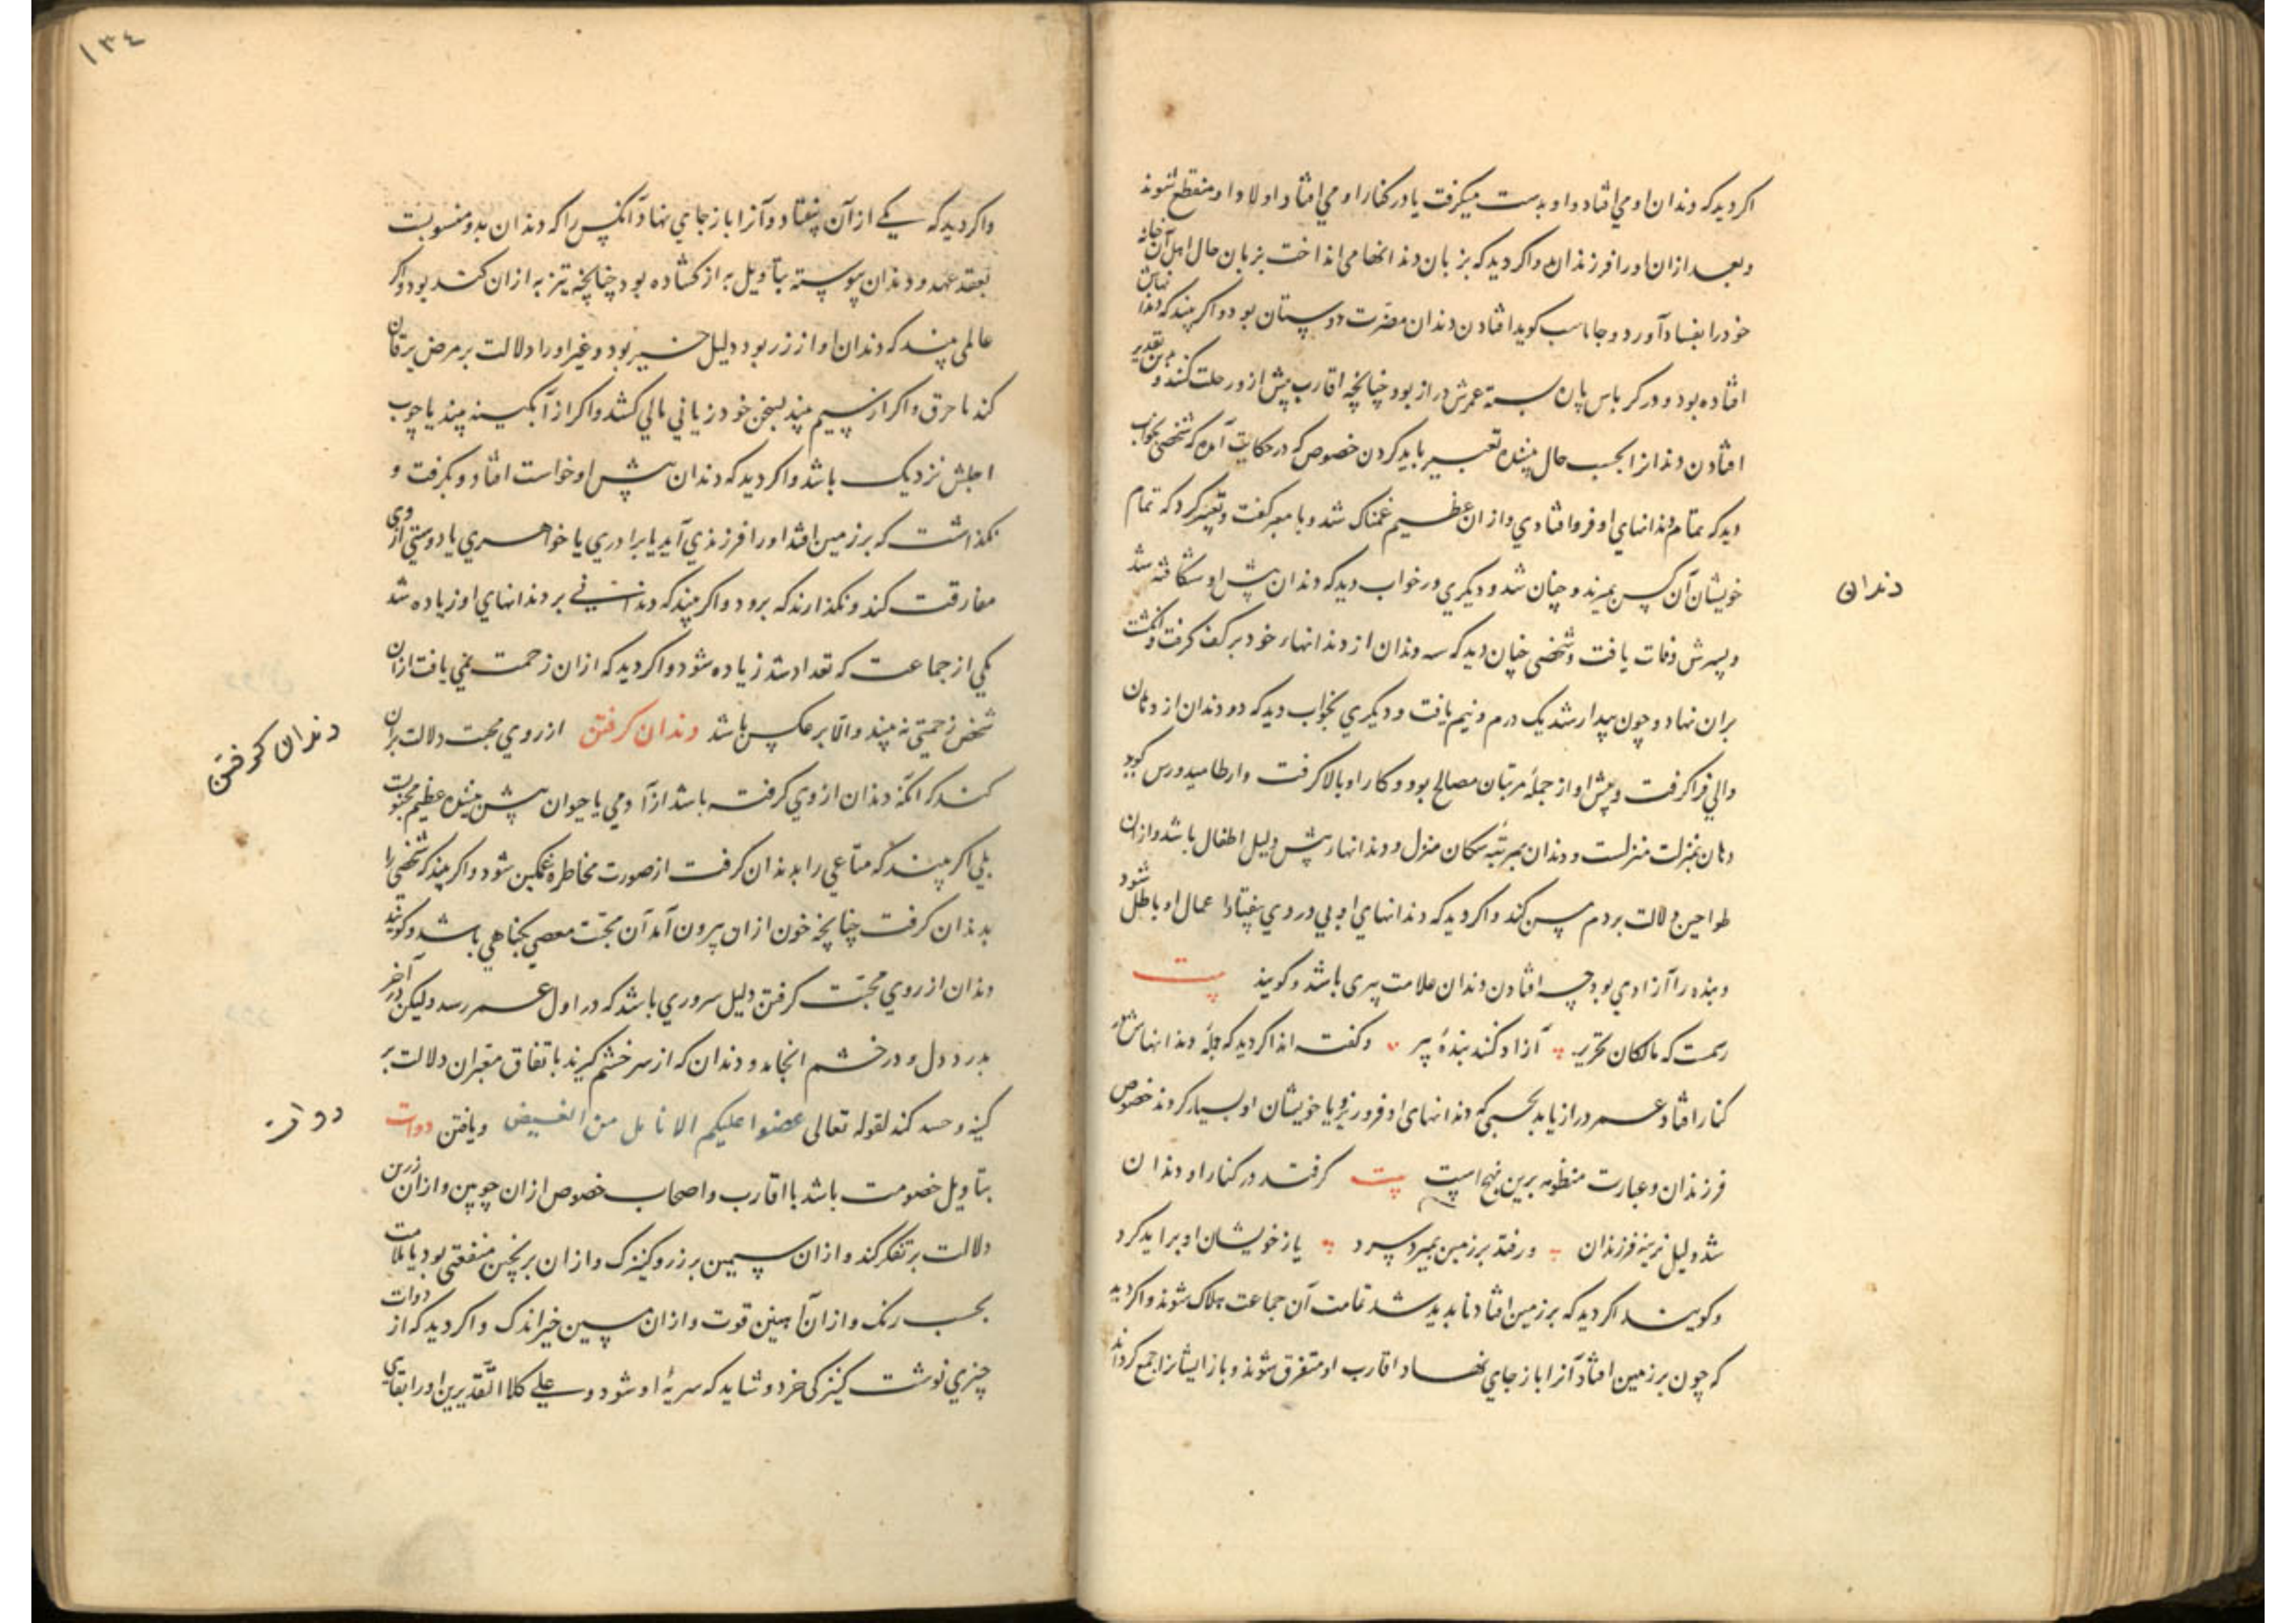 اکر دید که دندان او می افتاد و او بدست میکرفت یا در کنار او می افتاد اولاد او منقطع شوند
و بعد ازان اورا فرزندان واکر دید که بزبان دندانها می انداخت بزبان حال اهل آن خانه
خود را بفساد آورد و جاماسب کوید افتادن دندان مضرت دوستان بود و اکر بیند که دندانهاش
افتاده بود و در کرباس پان بسته عمرش دراز بود چنانچه اقارب پیش از و رحلت کنند و برین تقدیر
افتادن دندانرا بحسب حال بیننده تعبیر باید کردن خصوص که در حکایت آمده که شخصی بخواب
دید که تمام دندانهای او فرو افتادی و ازان عظیم غمناک شد و با معبر کفت و تعبیر کرد که تمام
خویشان آن کس بمیرند و چنان شد و دیکری در خواب دید که دندان پیش او شکافته شد
دندان
و پسرش وفات یافت و شخصی چنان دید که سه دندان از دندانهاء خود بر کف کرفت و انکشت
بران نهاد و چون بیدار شد یک درم و نیم یافت و دیکری بخواب دید که دو دندان از دهان
والی فرا کرفت و پیش او از جمله مرتبان مصالح بود و کار او بالا کرفت وارطامیدورس کوید
دهان بمنزلت منزلست و دندان بمرتبه سکان منزل و دندانهاء پیش دلیل اطفال باشد و ازان
طواحین دلالت بر دم مسن کند و اکر دید که دندانهای او بی دردی بیفتاد اعمال او باطل شود
و بنده را آزادی بود چه افتادن دندان علامت پیری باشد و کویند بیت
رسمت که مالکان تحریر آزاد کنند بنده پیر و کفته اند اکر دید که جمله دندانهاش در
کنار افتاد عمر دراز یابد بحسبی که دندانهای او فرو ریزد و یا خویشان او بسیار کردند خصوص
فرزندان و عبارت منظومه برین نهج است بیت کرفتد در کنار او دندان
شد دلیل نرینه فرزندان ور فتد بر زمین بمیرد پسرد یا ز خویشان او برآید کرد
و کویند اکر دید که بر زمین افتاد ناپدید شد تمامت آن جماعت هلاک شوند و اکر دید
که چون بر زمین افتاد آنرا باز جای نهاد اقارب او متفرق شوند و باز ایشانرا جمع کرداند
۱۳٤
واکر دید که یکی از آن بیفتاد و آنرا باز جای نهاد آنکس را که دندان بدو منسوبست
بعقد عهد و دندان پیوسته بتاویل به از کشاده بود چنانچه تیز به ازان کند بود و اکر
عالمی بیند که دندان او از زر بود دلیل خیر بود و غیر اورا دلالت بر مرض یرقان
کند یا حرق و اکر از سیم بیند بسخن خود زیانی مالی کشد و اکر از آبکینه بیند یا چوب
اجلش نزدیک باشد و اکر دید که دندان پیش او خواست افتاد و بکرفت و
نکذاشت که بر زمین افتد اورا فرزندی آید یا برادری یا خواهری یا دوستی از وی
مفارقت کند و نکذارند که برود و اکر بیند که دندانی بر دندانهای او زیاده شد
یکی از جماعت که تعداد شد زیاده شود و اکر دید که ازان زحمت نمی یافت ازان
شخص زحمتی نه بیند و الا بر عکس باشد دندان کرفتن از روی محبت دلالت بران
دندان کرفتن
کند که آنکه دندان از وی کرفته باشد از آدمی یا حیوان پیش بیننده عظیم محبوبست
بلی اکر بیند که متاعی را بدندان کرفت از صورت مخاطره غمکین شود و اکر بیند که شخصی را
بدندان کرفت چنانچه خون ازان بیرون آمد آن محبت معصی بکناهی باشد و کویند
دندان از روی محبت کرفتن دلیل سروری باشد که در اول عمر رسد ولیکن در آخر
بدرد دل و در خشم انجامد و دندان که از سر خشم کیرند باتفاق معبران دلالت بر
کینه و حسد کند لقوله تعالی عضوا علیکم الانامل من الغیض و یافتن دوات
دوات
بتاویل خصومت باشد با اقارب و اصحاب خصوص ازان چوبین و ازان زرین
دلالت بر تفکر کند و ازان سیمین بر زر و کنیزک و ازان برنجین منفعتی بود یا ملامت
بحسب رنک و ازان آهنین قوت و ازان مسین خیر اندک و اکر دید که از دوات
چیزی نوشت کنیزکی خرد و شاید که سریه او شود و علی کلا التقدیرین اورا بقای